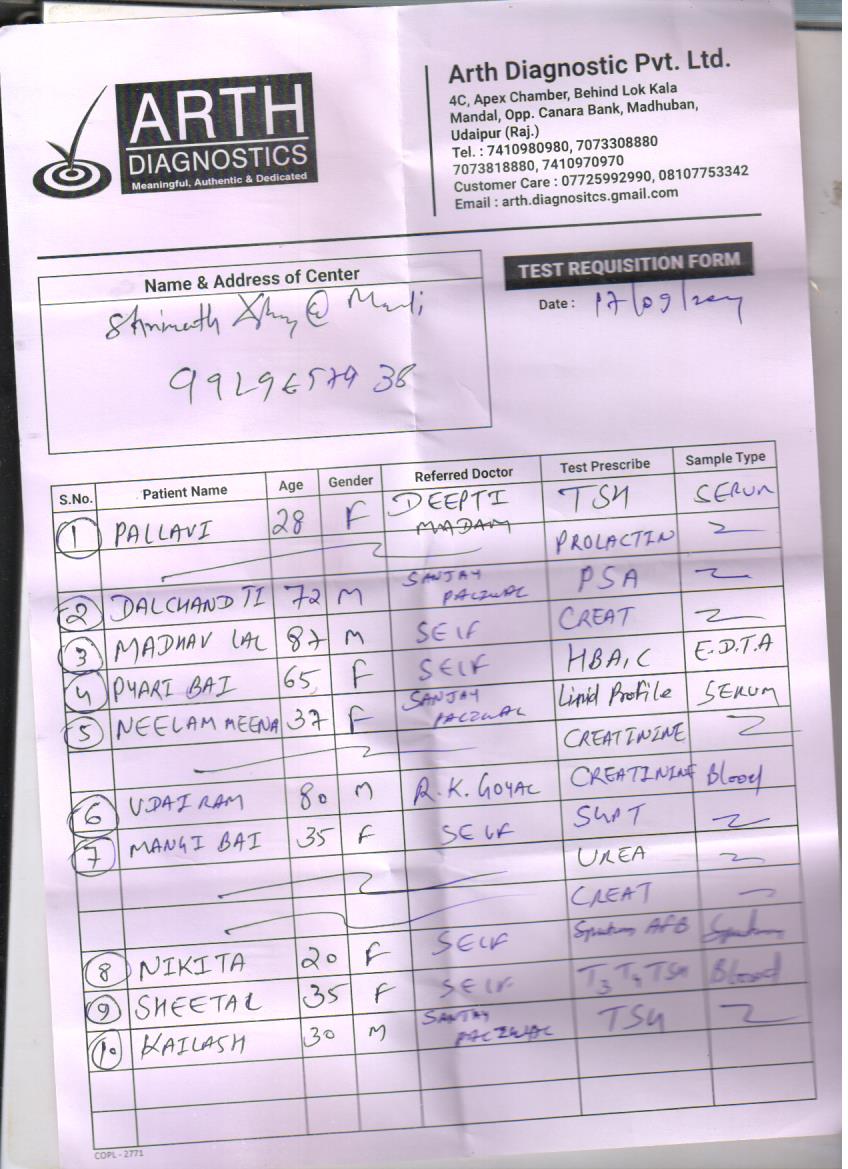 ARTH
DIAGNOSTICS
Meaningful, Authentic & Dedicated
Arth Diagnostic Pvt. Ltd.
4C, Apex Chamber, Behind Lok Kala
Mandal, Opp. Canara Bank, Madhuban,
Udaipur (Raj.)
Tel. : 7410980980, 7073308880
7073818880, 7410970970
Customer Care : 07725992990, 08107753342
Email : arth.diagnositcs.gmail.com
Name & Address of Center
@
TEST REQUISITION FORM
Date : 17/09/
S.No. Patient Name Age Gender Referred Doctor Test Prescribe Sample Type
1 PALLAVI 28 F DEEPTI MADAM TSH SERUM
PROLACTIN
2 DALCHAND JI 72 M SANJAY PALIWAL PSA
3 MADHAV LAL 87 M SELF CREAT
4 PYARI BAI 65 F SELF HBA1C E.D.T.A
5 NEELAM MEENA 37 F SANJAY PALIWAL Lipid Profile SERUM
CREATININE
6 UDAI RAM 80 M R.K. GOYAL CREATININE Blood
7 MANGI BAI 35 F SELF SGPT
UREA
CREAT
8 NIKITA 20 F SELF Sputum AFB Sputum
9 SHEETAL 35 F SELF T3 T4 TSH Blood
10 KAILASH 30 M SANJAY PALIWAL TSH
COPL - 2771